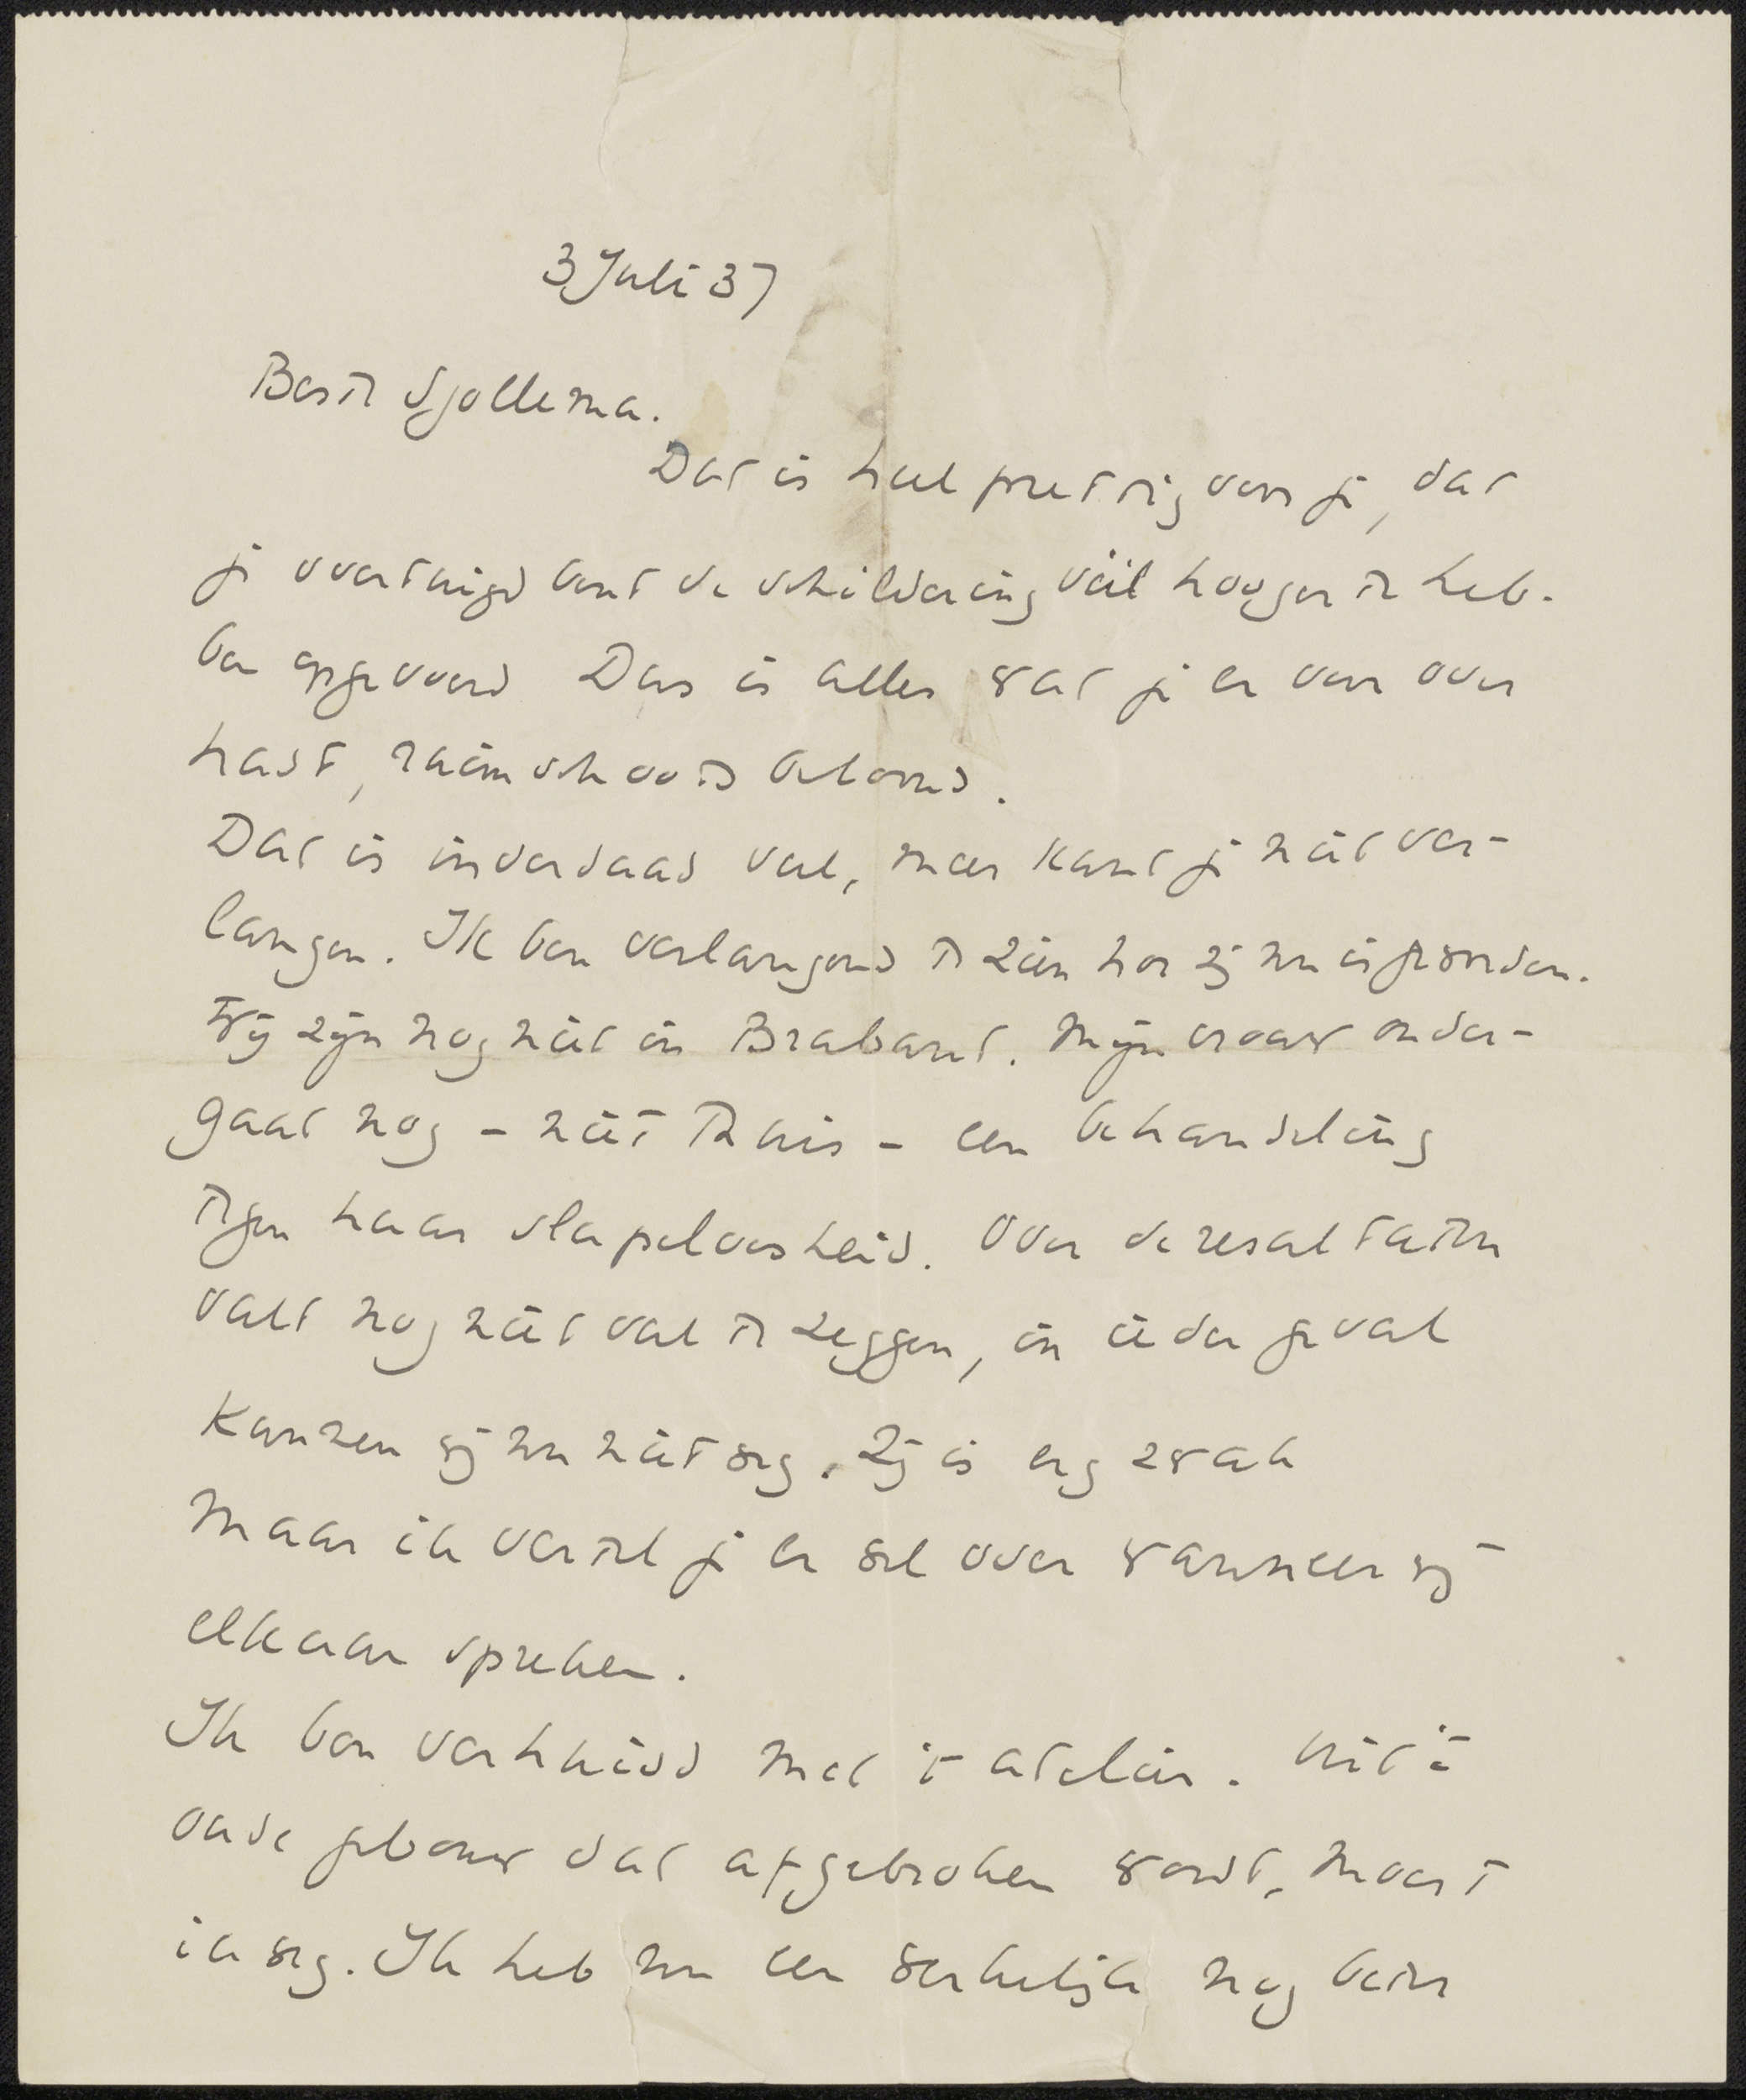 3 Juli 37
Beste Sjollema.
Dat is heel prettig van je, dat
je overtuigd bent de schildering véél hooger te heb-
ben opgevoerd Dan is alles wat je er van over
hadt, ruimschoots beloond.
Dat is inderdaad veel, meer kunt je niet ver-
langen. Ik ben verlangend te zien hoe zij nu is geworden.
Wij zijn nog niet in Brabant. Mijn vrouw onder-
gaat nog - niet thuis - een behandeling
tegen haar slapeloosheid. Over de resultaten
valt nog niet veel te zeggen, in ieder geval
kunnen wij nu niet weg. Zij is erg zwak
maar ik vertel je er wel over wanneer wij
elkaar spreken.
Ik ben verhuisd met 't atelier. Uit 't
oude gebouw dat afgebroken wordt, moest
ik weg. Ik heb nu een werkelijk nog beter